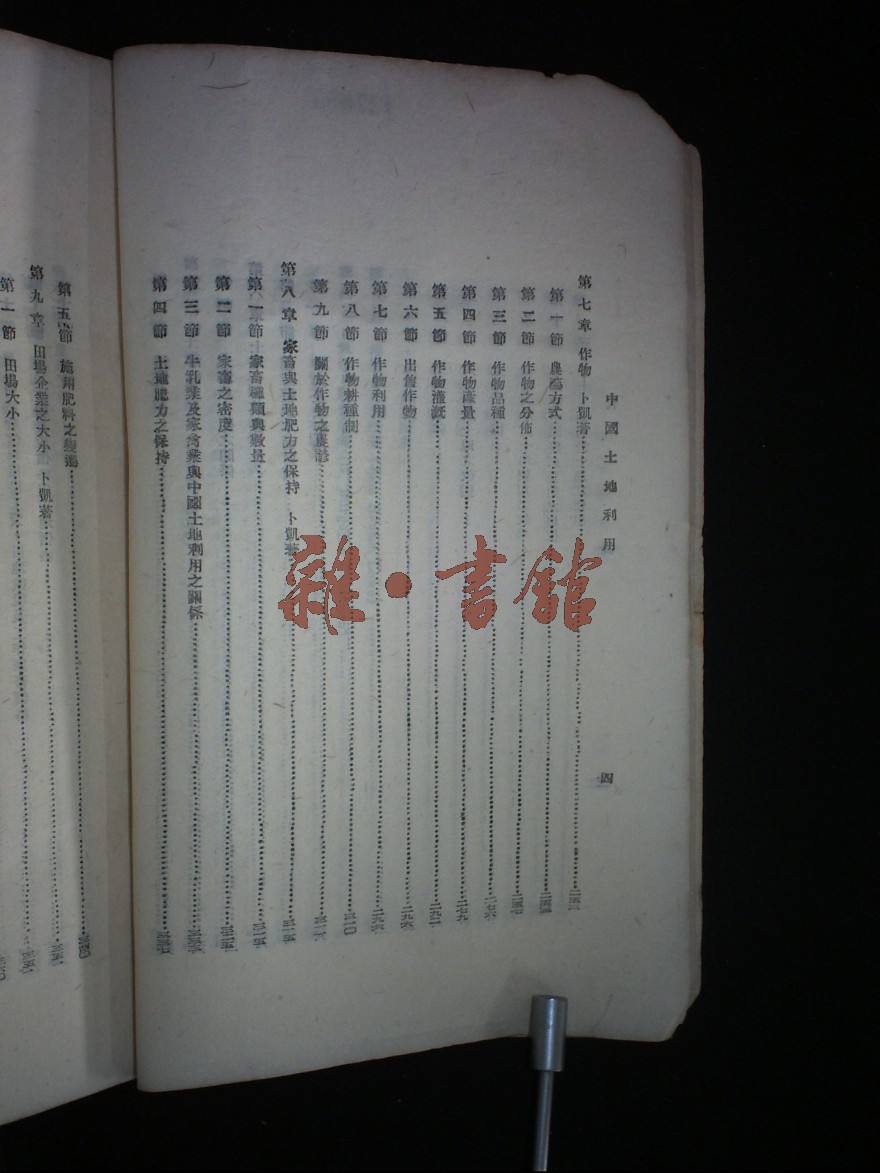 中國土地利用
四
第七章 作物 卜凱著
第一節 農藝方式
第二節 作物之分佈
第三節 作物品種
第四節 作物產量
第五節 作物灌溉
第六節 出售作物
第七節 作物利用
第八節 作物耕種制
第九節 關於作物之農諺
第八章 家畜與土地肥力之保持 卜凱著
第一節 家畜種類與數量
第二節 家畜之密度
第三節 牛乳業及家禽業與中國土地利用之關係
第四節 土地肥力之保持
第五節 施用肥料之
第九章 田場企業之大小 卜凱著
第一節 田場大小
雜·書館